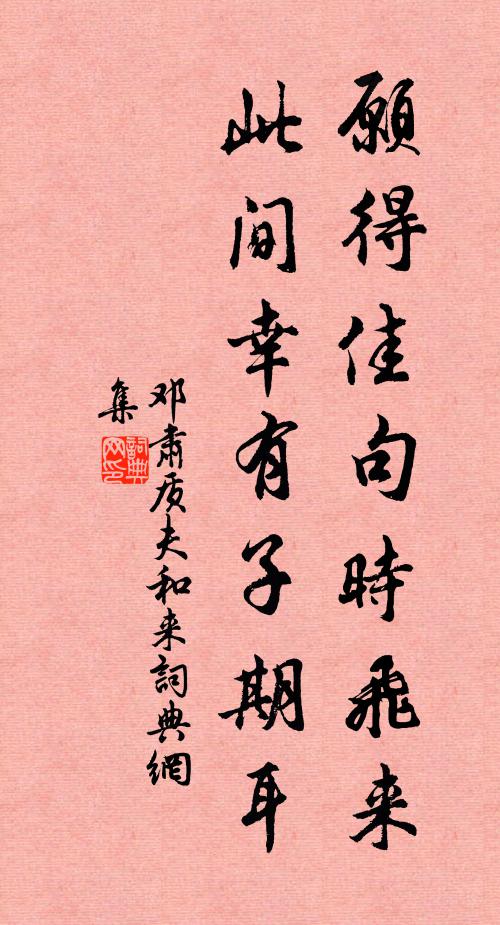 願得佳句時飛来
此间幸有子期耳
邓肅质夫和来詞典網
集
詞典網印